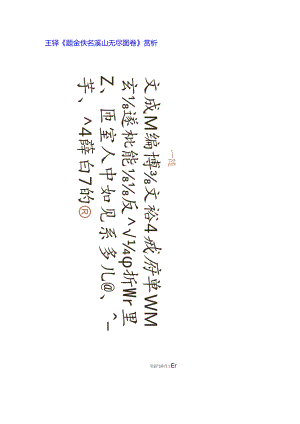 王铎《题金佚名溪山无尽图卷》赏析
文成M编博⅜文裕4戚府单WM
玄⅛遂枇能⅛⅛反^√¼φ折Wr里
Z、匝室人中如见系多儿@、^_
芋、^4薛白7的®
Er